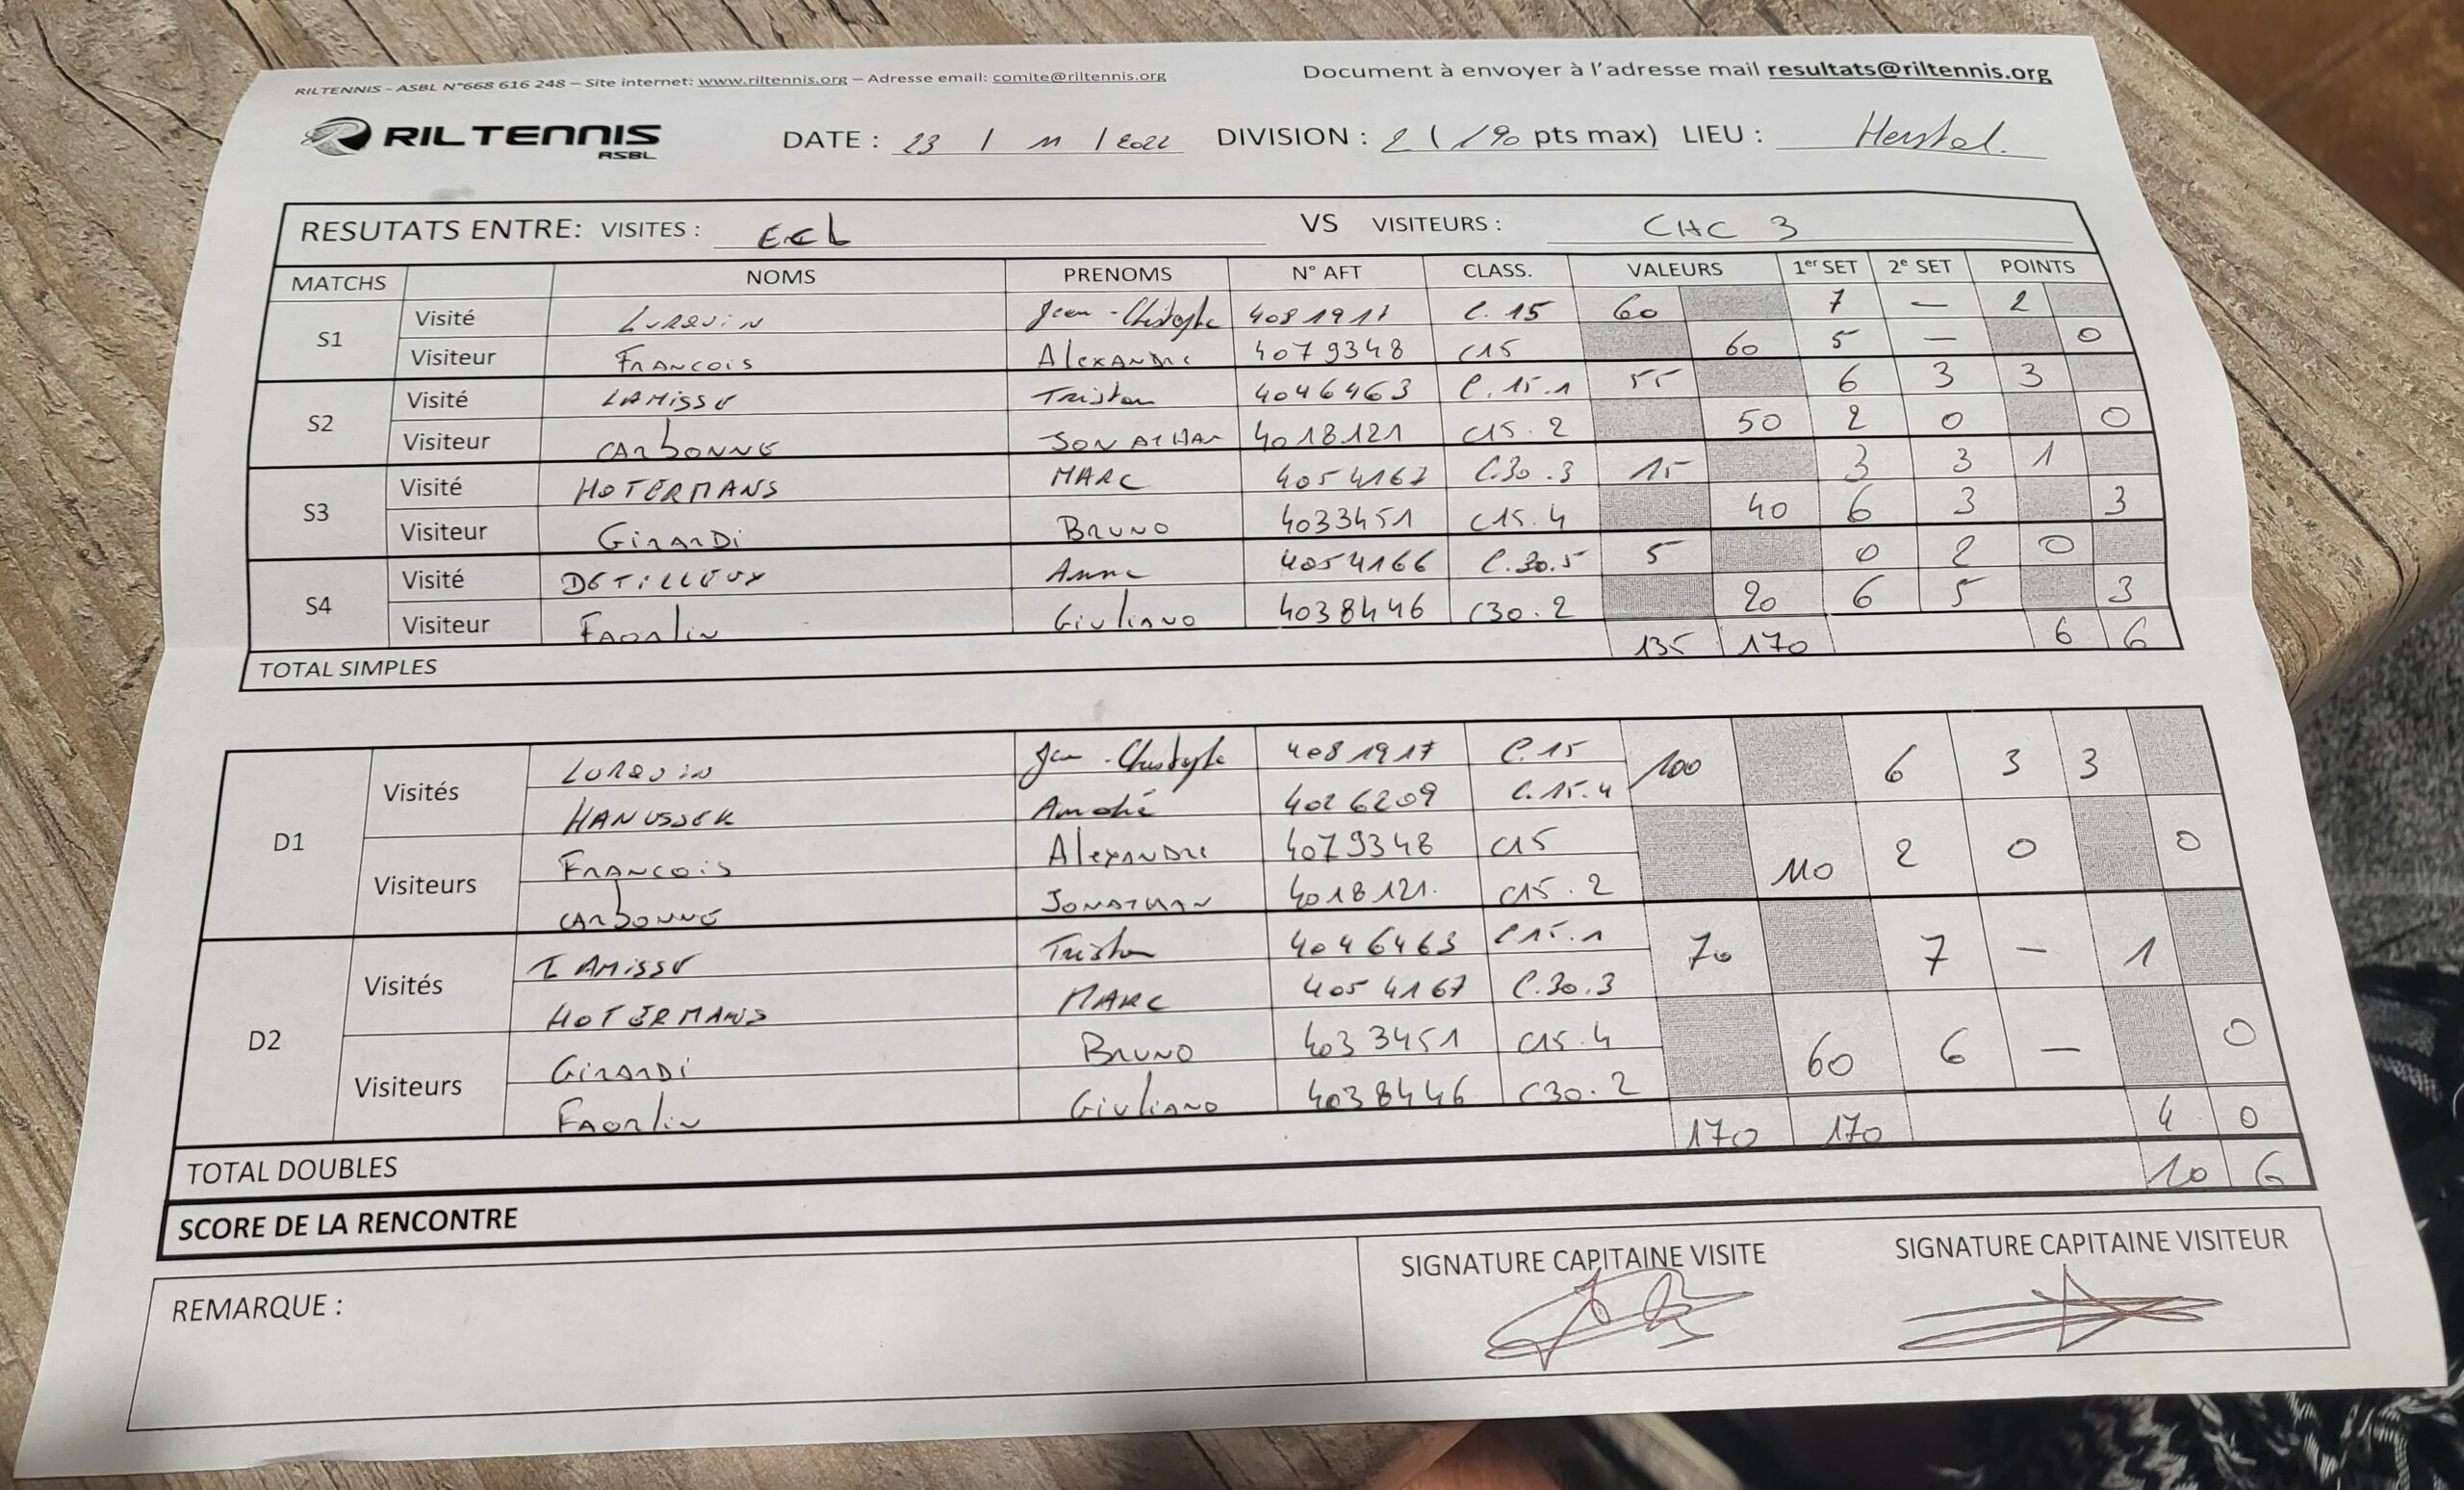 RILTENNIS - ASBL N°668 616 248 – Site internet: www.riltennis.org – Adresse email: comite@riltennis.org
Document à envoyer à l'adresse mail resultats@riltennis.org
RILTENNIS ASBL DATE : 23 / 11 / 2022 DIVISION : 2 ( 190 pts max) LIEU : Herstal.
RESUTATS ENTRE: VISITES : VS VISITEURS : CHC 3
MATCHS NOMS PRENOMS N° AFT CLASS. VALEURS 1er SET 2e SET POINTS
S1 Visité LURQUIN Jean-Christophe 4081917 C.15 60 7 — 2
Visiteur FRANCOIS ALEXANDRE 4079348 C15 60 5 — 0
S2 Visité LAMISSE Tristan 4046463 C.15.1 55 6 3 3
Visiteur CARBONNE JONATHAN 4018121 C15.2 50 2 0 0
S3 Visité HOTERMANS MARC 4054167 C.30.3 15 3 3 1
Visiteur GIRARDI BRUNO 4033451 C15.4 40 6 3 3
S4 Visité DETILLEUX Anne 4054166 C.30.5 5 0 2 0
Visiteur GIULIANO 4038446 C30.2 20 6 5 3
TOTAL SIMPLES 135 170 6 6
D1 Visités LURQUIN Jean-Christophe 4081917 C.15 100 6 3 3
HANUSSEK André 4026209 C.15.4
Visiteurs FRANCOIS ALEXANDRE 4079348 C15 110 2 0 0
CARBONNE JONATHAN 4018121. C15.2
D2 Visités LAMISSE Tristan 4046463 C15.1 70 7 — 1
HOTERMANS MARC 4054167 C.30.3
Visiteurs GIRARDI BRUNO 4033451 C15.4 60 6 — 0
GIULIANO 4038446 C30.2
TOTAL DOUBLES 170 170 4 0
SCORE DE LA RENCONTRE 10 6
REMARQUE :
SIGNATURE CAPITAINE VISITE
SIGNATURE CAPITAINE VISITEUR